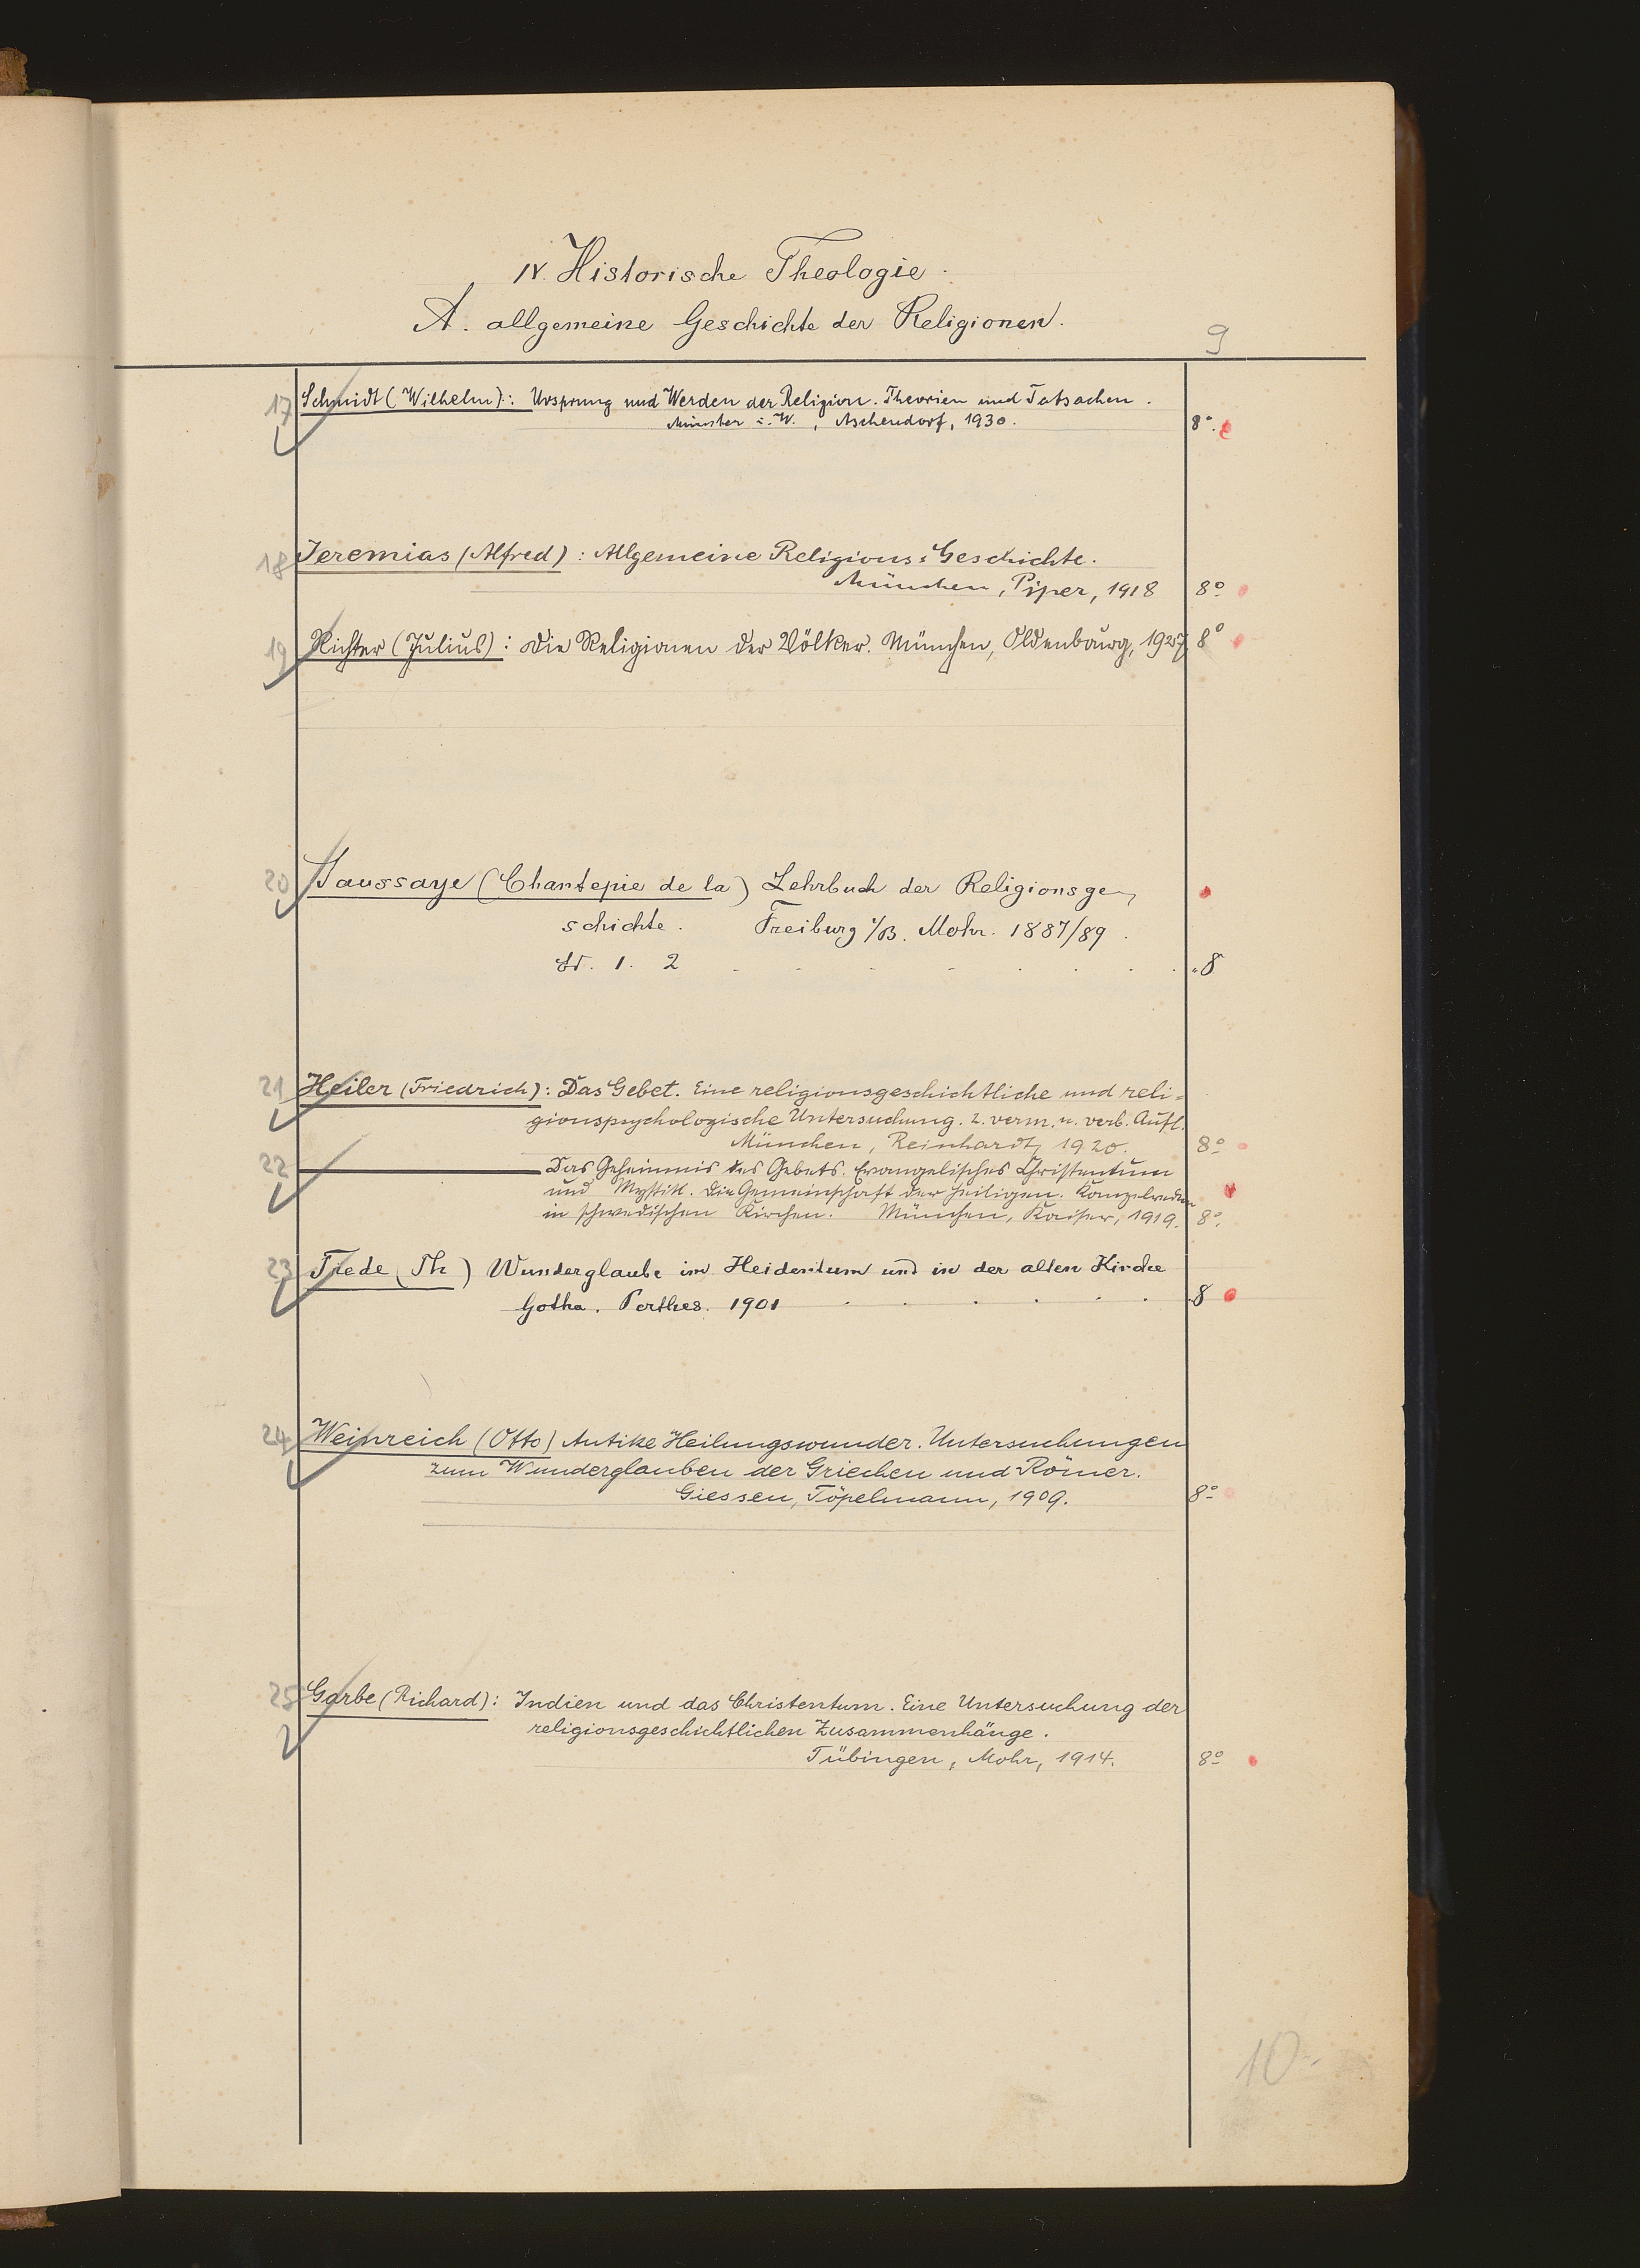 IV. Historische Theologie.
A. allgemeine Geschichte der Religionen.
9
17 Schmidt (Wilhelm): Ursprung und Werden der Religion. Theorien und Tatsachen.
Münster i. W., Aschendorf, 1930. 8°.
18 Jeremias (Alfred): Allgemeine Religions-Geschichte.
München, Piper, 1918 8°
19 Richter (Julius): Die Religionen der Völker. München, Oldenbourg, 1927 8°
20 Saussaye (Chantepie de la) Lehrbuch der Religionsge-
schichte. Freiburg i/B. Mohr. 1887/89.
Bd. 1. 2 . . . . . . . 8
21 Heiler (Friedrich): Das Gebet. Eine religionsgeschichtliche und reli=
gionspsychologische Untersuchung. 2. verm. u. verb. Aufl.
München, Reinhardt, 1920. 8°
22 Das Geheimnis des Gebets. Evangelisches Christentum
und Mystik. Die Gemeinschaft der Heiligen. Kanzelreden
in schwedischen Kirchen. München, Kaiser, 1919. 8°.
23 Trede (Th) Wunderglaube im Heidentum und in der alten Kirche
Gotha. Perthes. 1901 . . . . . . 8
24 Weinreich (Otto) Antike Heilungswunder. Untersuchungen
zum Wunderglauben der Griechen und Römer.
Giessen, Töpelmann, 1909. 8°
25 Garbe (Richard): Indien und das Christentum. Eine Untersuchung der
religionsgeschichtlichen Zusammenhänge.
Tübingen, Mohr, 1914. 8°
10